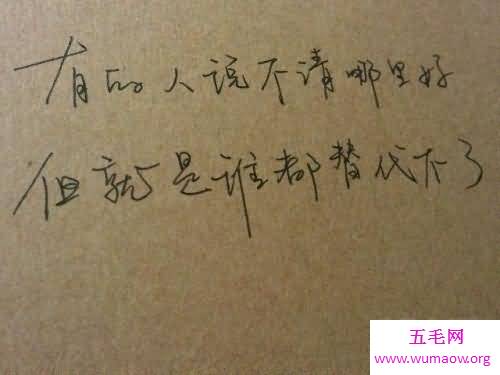 有的人说不清哪里好
但就是谁都替代不了
五毛网
www.wumaow.org